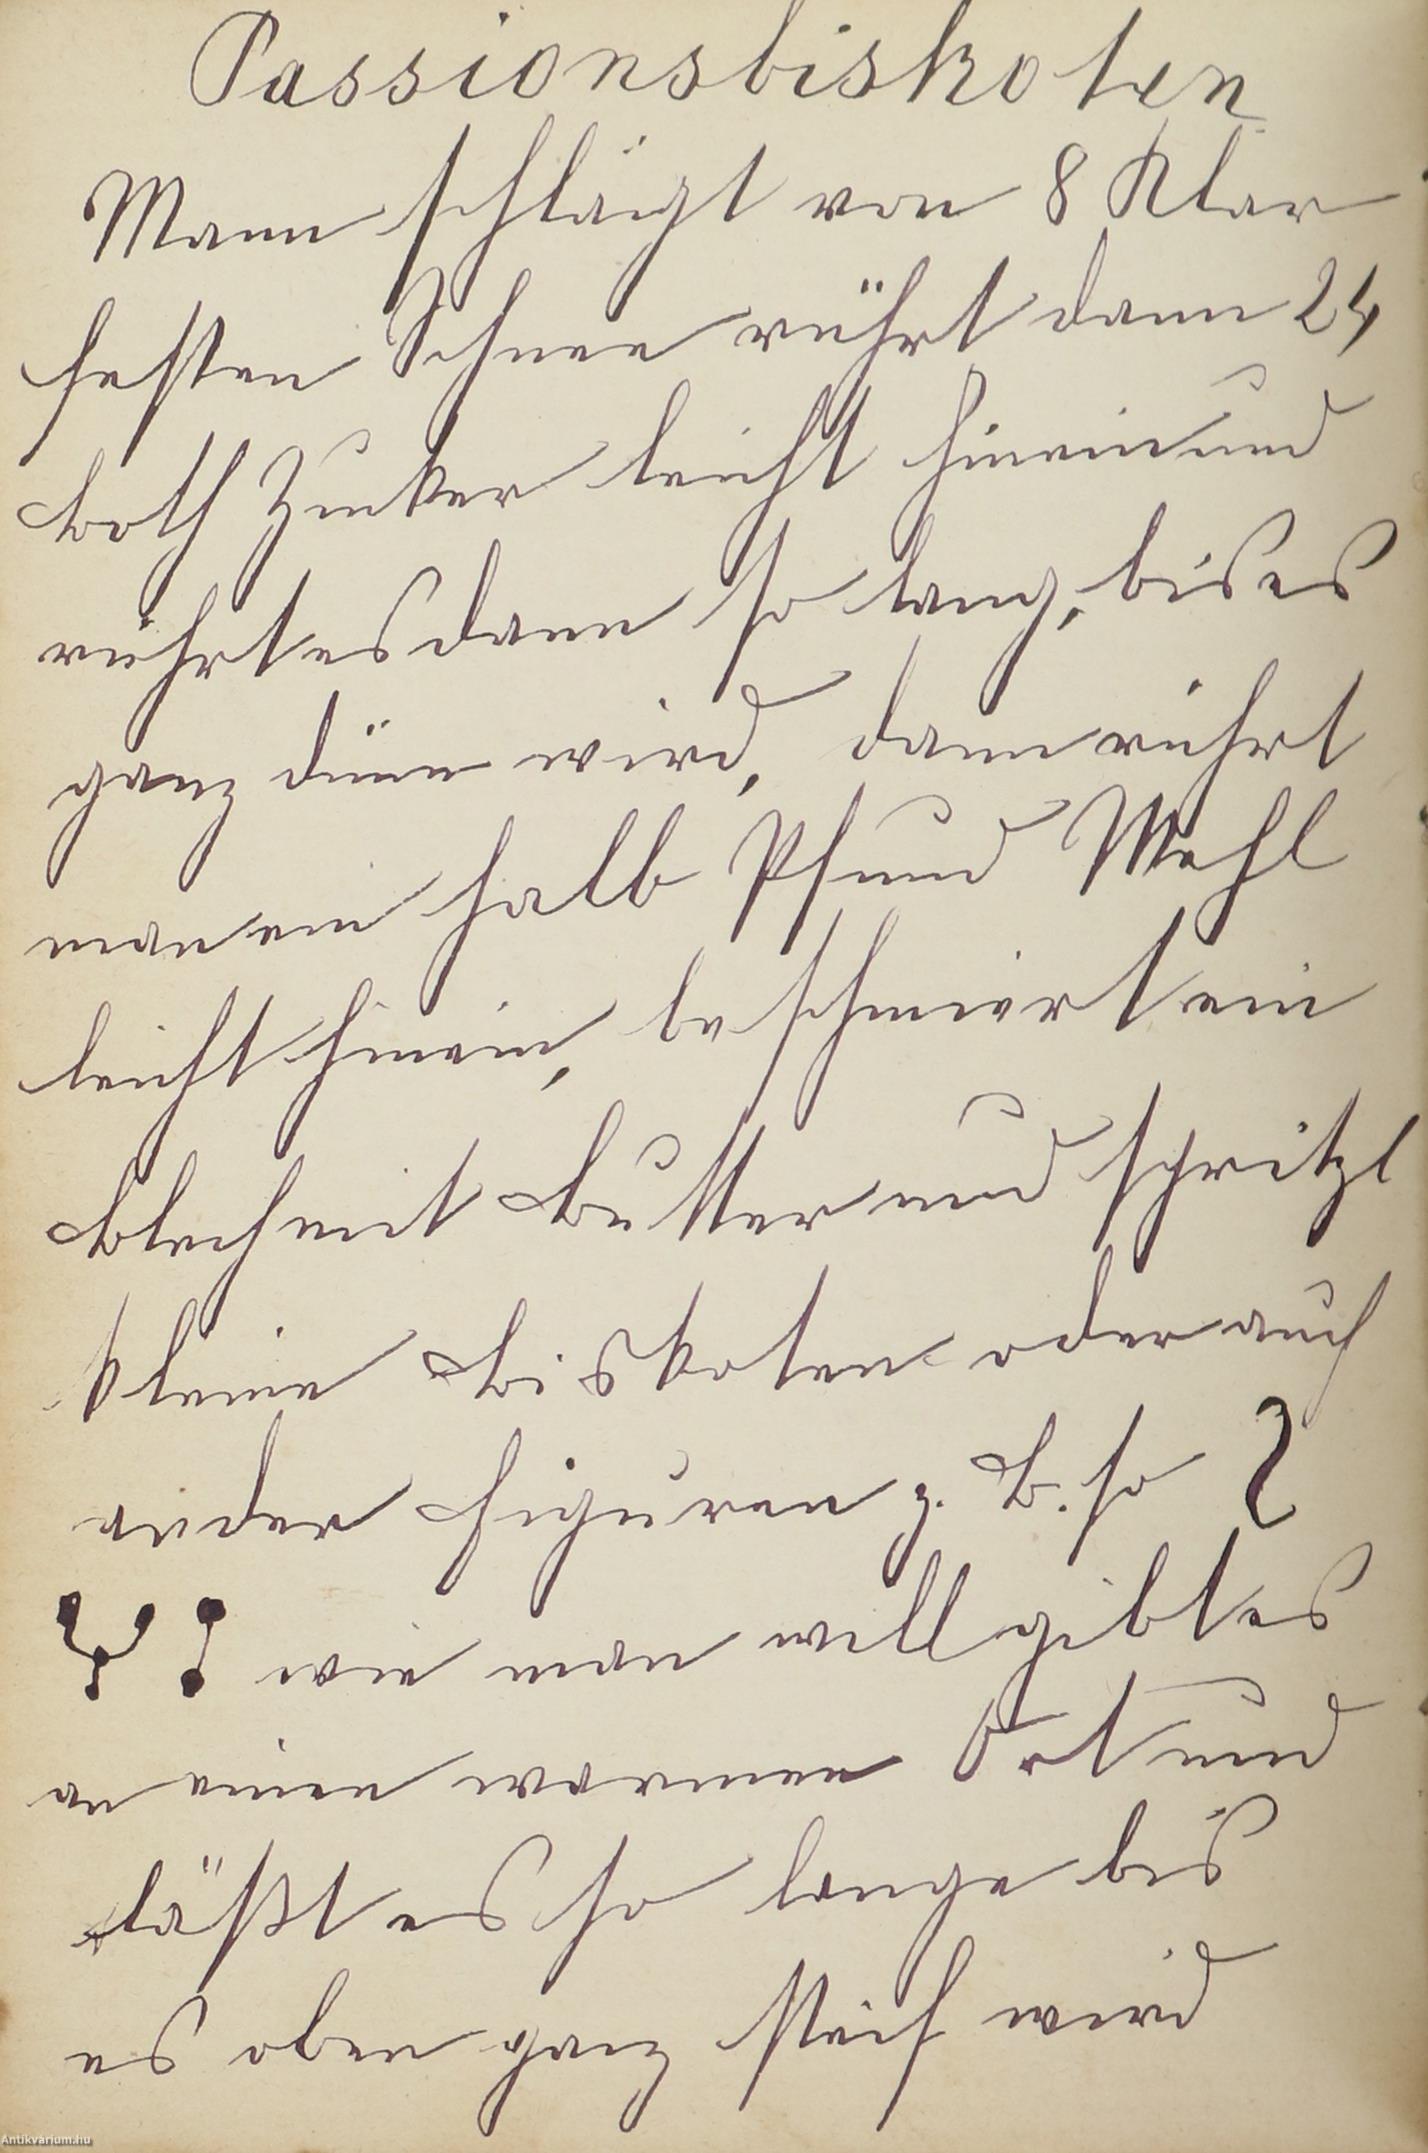 Passionsbiskoten
Mann schlägt von 8 Klar
festen Schnee rührt dann 24
Loth Zucker leicht hinein und
rührt es dann so lang, bis es
ganz dünn wird, dann rührt
man ein halb Pfund Mehl
leicht hinein, beschmiert ein
Blech mit Butter und spritzt
kleine Biskoten oder auch
ander Figuren z. B. so
wie man will gibt es
an einen warmen Ort und
läßt es so lange bis
es oben ganz steif wird
Antikvárium.hu